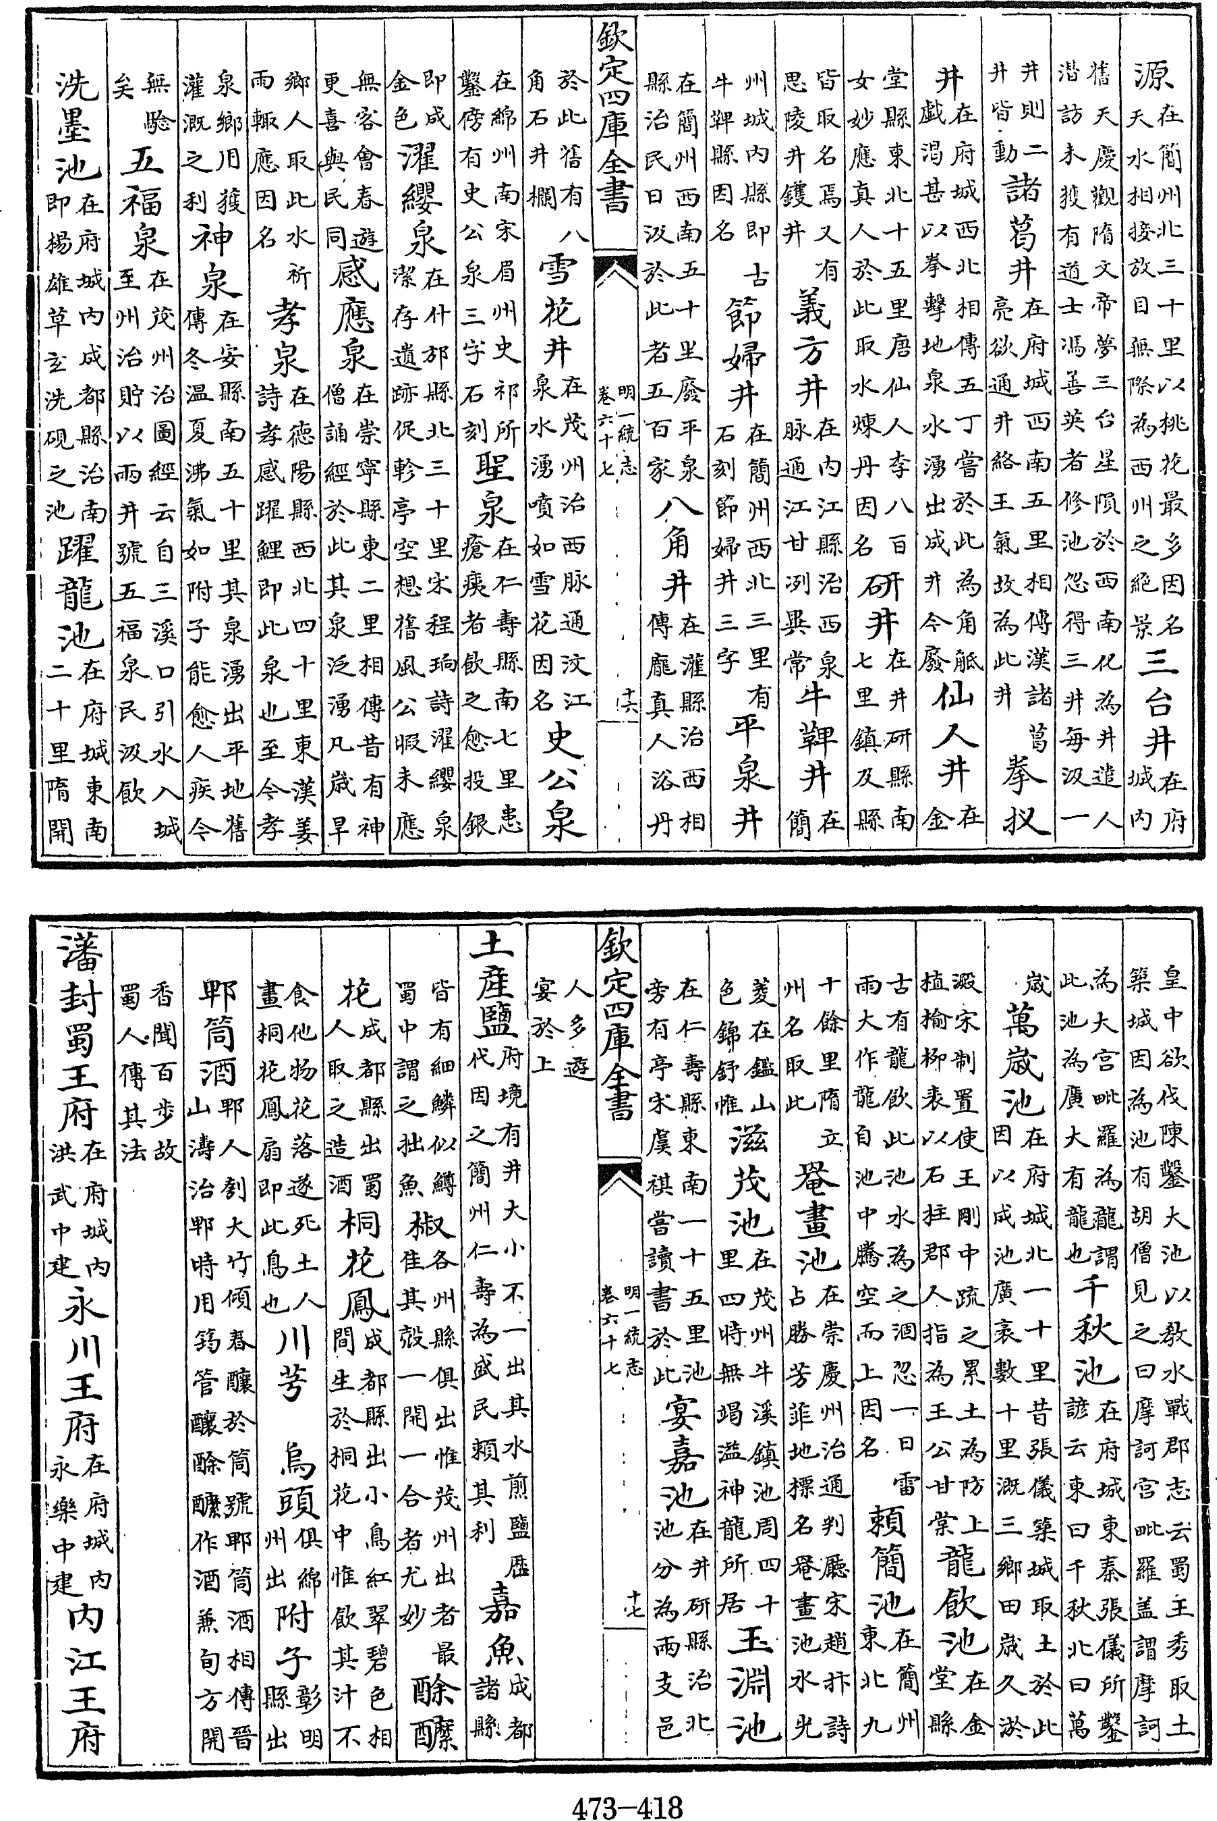 源在簡州北三十里以桃花最多因名天水相接放目無際為西州之絕景三台井在府城内
舊天慶觀隋文帝夢三台星隕於西南化為井遣人潜訪未獲有道士馮善英者修池忽得三井每汲一
井則二井皆動諸葛井在府城西南五里相傳漢諸葛亮欲通井絡王氣故為此井拳扠
井在府城西北相傳五丁嘗於此為角觝戲渴甚以拳擊地泉水湧出成井今廢仙人井在金
堂縣東北十五里唐仙人李八百女妙應真人於此取水煉丹因名研井在井研縣南七里鎮及縣
皆取名焉又有思陵井鑊井義方井在内江縣治西泉脉通江甘冽異常牛鞞井在簡
州城内縣即古牛鞞縣因名節婦井在簡州西北三里有石刻節婦井三字平泉井
在簡州西南五十里廢平泉縣治民日汲於此者五百家八角井在灌縣治西相傳龎真人浴丹
欽定四庫全書 明一統志卷六十七 十六
於此舊有八角石井欄雪花井在茂州治西脉通汶江泉水湧噴如雪花因名史公泉
在綿州南宋眉州史祁所鑿傍有史公泉三字石刻聖泉在仁壽縣南七里患瘡痍者飲之愈投銀
即成金色濯纓泉在什邡縣北三十里宋程珦詩濯纓泉潔存遺跡促軫亭空想舊風公暇未應
無客會春遊更喜與民同感應泉在崇寧縣東二里相傳昔有神僧誦經於此其泉泛湧凡歲旱
鄉人取此水祈雨輒應因名孝泉在德陽縣西北四十里東漢姜詩孝感躍鯉即此泉也至今孝
泉鄉用獲灌溉之利神泉在安縣南五十里其泉湧出平地舊傳冬溫夏沸氣如附子能愈人疾今
無驗矣五福泉在茂州治圖經云自三溪口引水入城至州治貯以兩井號五福泉民汲飲
洗墨池在府城内成都縣治南即楊雄草玄洗硯之池躍龍池在府城東南二十里隋開
皇中欲伐陳鑿大池以教水戰郡志云蜀王秀取土築城因為池有胡僧見之曰摩訶宫毗羅盖謂摩訶
為大宫毗羅為龍謂此池為廣大有龍也千秋池在府城東秦張儀所鑿諺云東曰千秋北曰萬
歲萬歲池在府城北一十里昔張儀築城取土於此因以成池廣袤數十里溉三鄉田歲久淤
澱宋制置使王剛中疏之累土為防上植榆柳表以石拄郡人指為王公甘棠龍飲池在金堂縣
古有龍飲此池水為之涸忽一日雷雨大作龍自池中騰空而上因名賴簡池在簡州東北九
十餘里隋立州名取此罨畫池在崇慶州治通判廳宋趙抃詩占勝芳菲地標名罨畫池水光
菱在鑑山色錦舒惟滋茂池在茂州牛溪鎮池周四十里四時無竭溢神龍所居玉淵池
在仁壽縣東南一十五里池旁有亭宋虞祺嘗讀書於此宴嘉池在井研縣治北池分為兩支邑
欽定四庫全書 明一統志卷六十七 十七
人多遊宴於上
土產鹽府境有井大小不一出其水煎鹽歷代因之簡州仁壽為盛民賴其利嘉魚成都諸縣
皆有細鱗似鱒蜀中謂之拙魚椒各州縣俱出惟茂州出者最佳其殼一開一合者尤妙酴醾
花成都縣出蜀人取之造酒桐花鳳成都縣出小鳥紅翠碧色相間生於桐花中惟飲其汁不
食他物花落遂死土人畫桐花鳳扇即此鳥也川芎 烏頭俱綿州出附子彰明縣出
郫筒酒郫人刳大竹傾春釀於筒號郫筒酒相傳晉山濤治郫時用筠管釀酴醾作酒兼旬方開
香聞百步故蜀人傳其法
藩封蜀王府在府城内洪武中建永川王府在府城内永樂中建内江王府
473-418